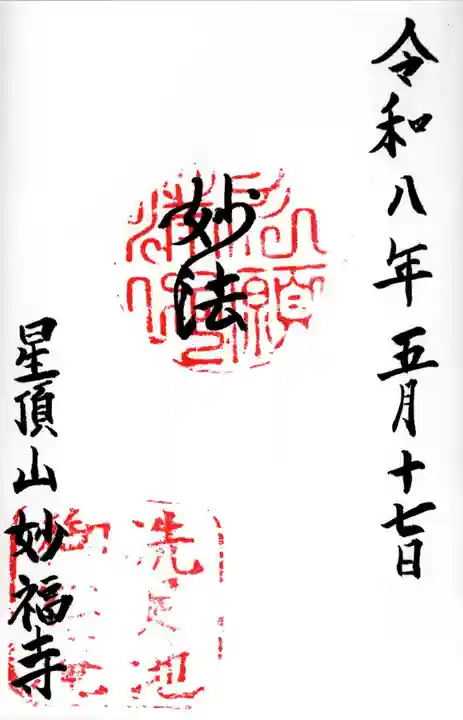 令和八年五月十七日
妙法
洗足池
星頂山妙福寺